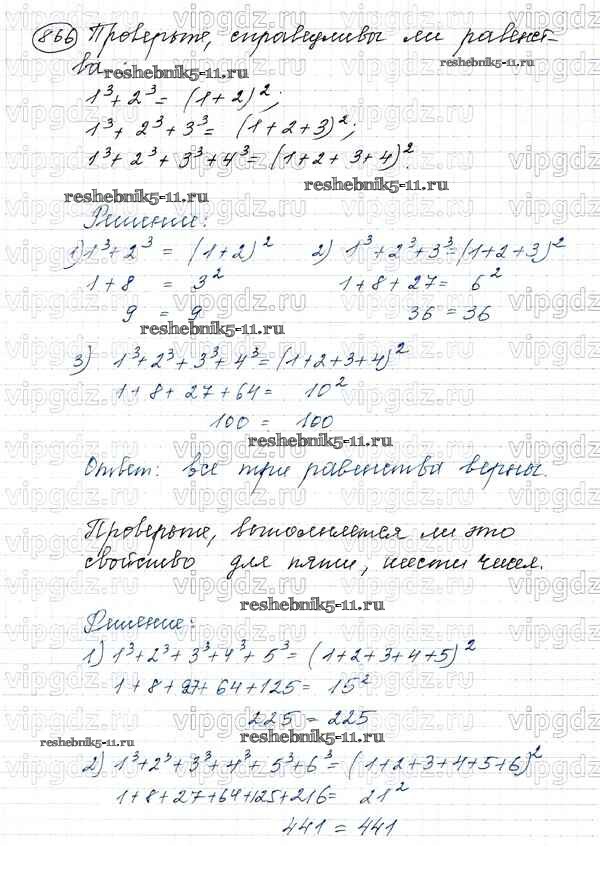 866 Проверьте, справедливы ли равенст-
ва:
reshebnik5-11.ru
reshebnik5-11.ru
1³+2³= (1+2)²;
1³+ 2³+3³= (1+2+3)²;
1³+2³+3³+4³=(1+2+3+4)².
reshebnik5-11.ru
reshebnik5-11.ru
Решение:
1) 1³+2³ = (1+2)² 2) 1³+2³+3³=(1+2+3)²
1+8 = 3² 1+8+27= 6²
9 = 9 36=36
reshebnik5-11.ru
3) 1³+2³+3³+4³=(1+2+3+4)²
1+8+27+64= 10²
100 = 100
reshebnik5-11.ru
Ответ: все три равенства верны.
Проверьте, выполняется ли это
свойство для пяти, шести чисел.
reshebnik5-11.ru
Решение:
1) 1³+2³+3³+4³+5³=(1+2+3+4+5)²
1+8+27+64+125= 15²
225=225
reshebnik5-11.ru
reshebnik5-11.ru
2) 1³+2³+3³+4³+5³+6³=(1+2+3+4+5+6)²
1+8+27+64+125+216= 21²
441=441
vipgdz.ru